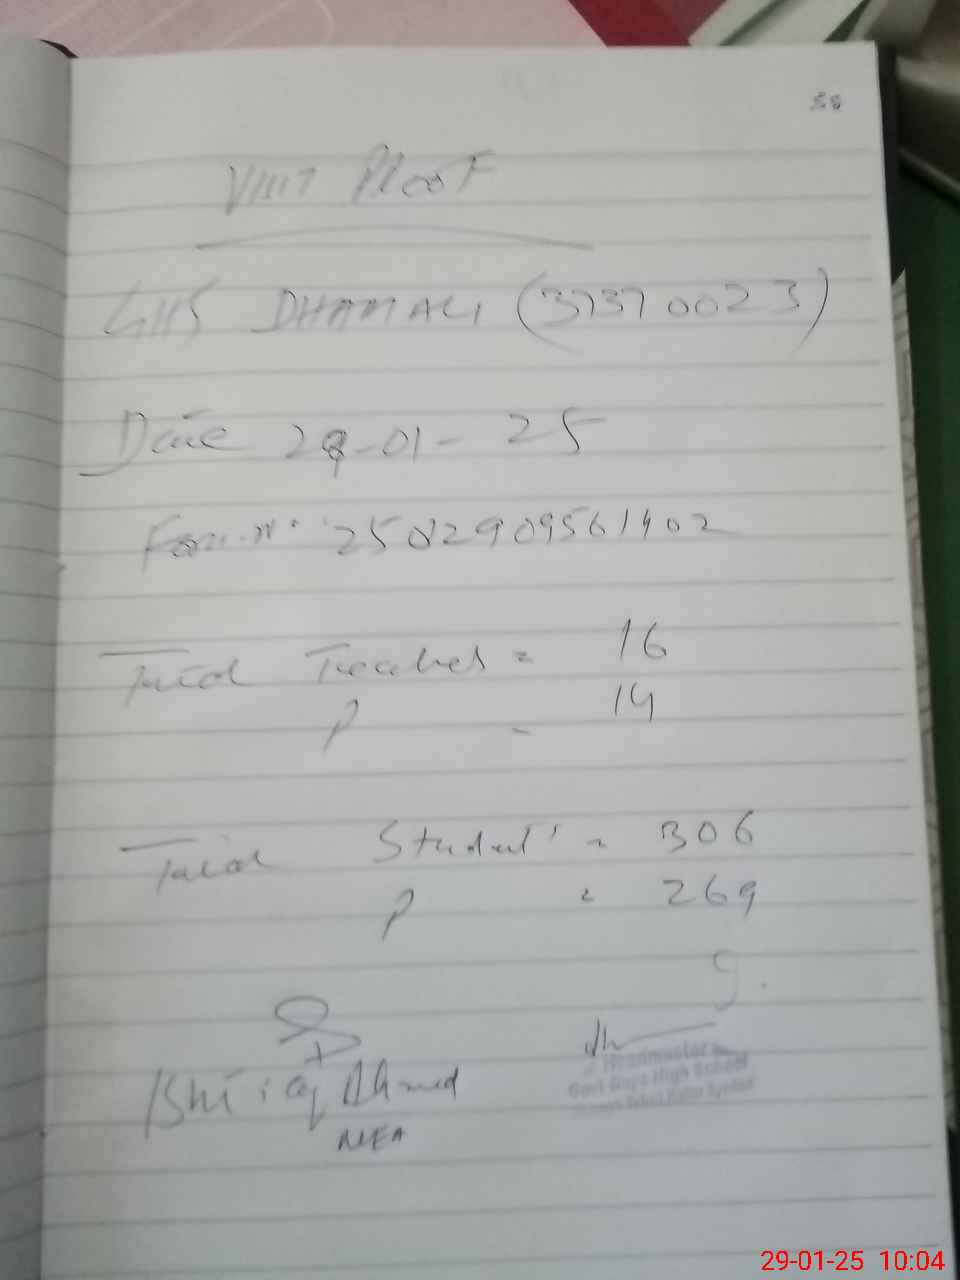 58
VISIT PROOF
GHS DHAMALI (37370023)
Date 29-01-25
Form N. 25012909561402
Total Teachers = 16
P = 14
Total Students = 306
P = 269
Ishtiaq Ahmed
MEA
Headmaster
Govt Boys High School
29-01-25 10:04